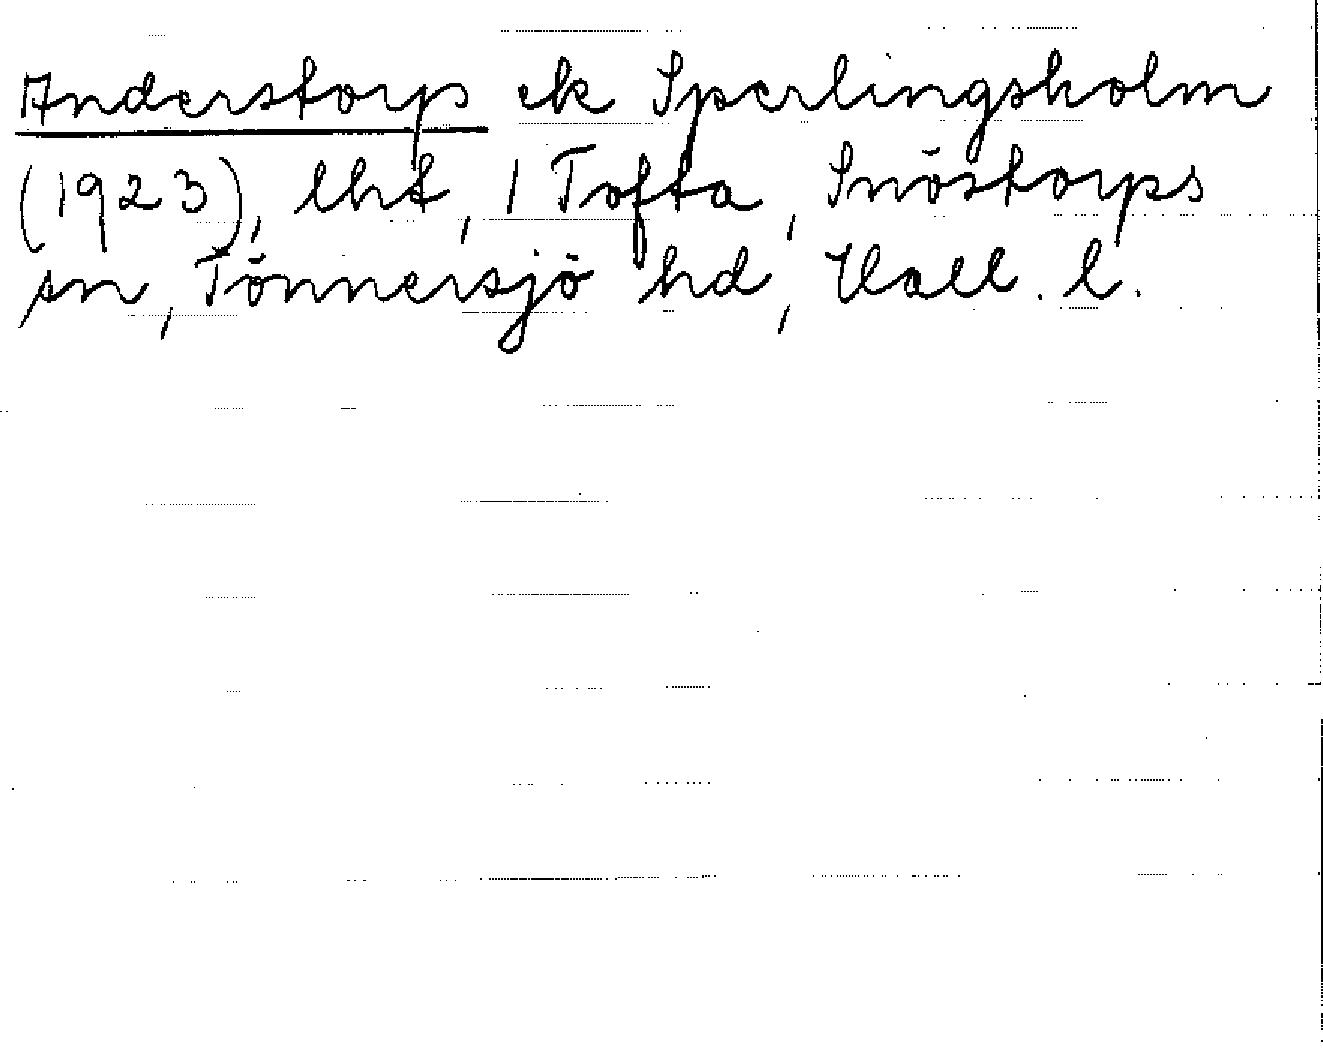 Anderstorp ek Sperlingsholm
(1923), lht, 1 Tofta, Snöstorps
sn, Tönnersjö hd, Hall. l.